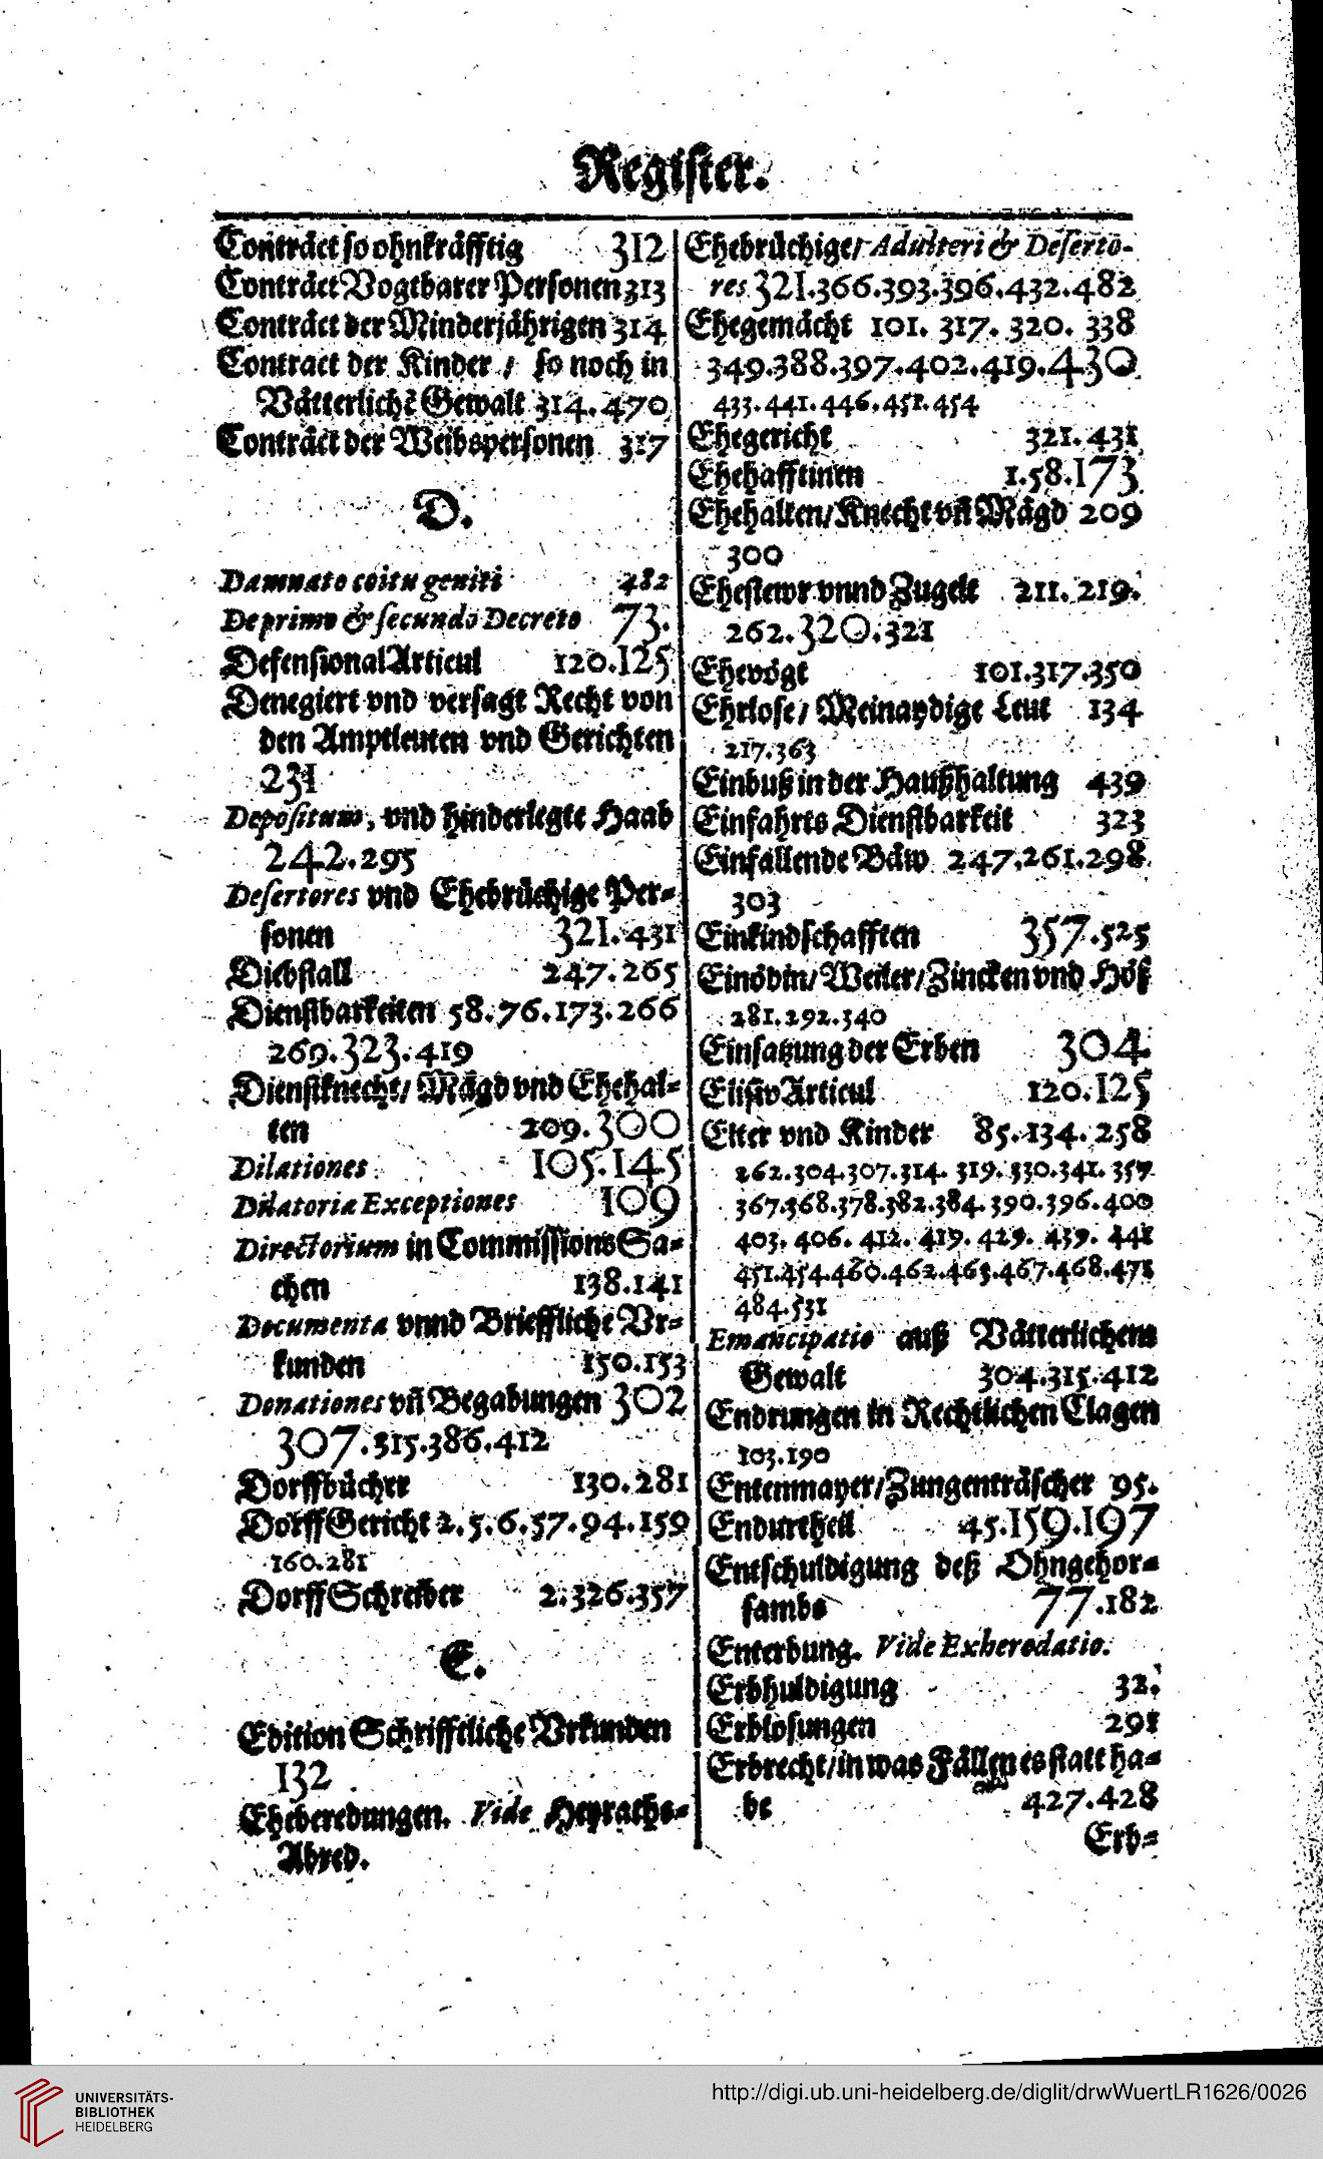 Register.
Conträct so ohnkräfftig 312
Conträct Vogtbarer Personen 313
Conträct der Minderjährigen 314
Contract der Kinder / so noch in
Vätterlichē Gewalt 314.470
Conträct der Weibspersonen 317
D.
Damnato coitu geniti 482
De primo & secundo Decreto 73.
Defensional Articul 120.125
Denegiert vnd versagt Recht von
den Amptleuten vnd Gerichten
231
Depositum, vnd hinderlegte Haab
242.295
Desertores vnd Ehebrüchige Per-
sonen 321.431
Diebstall 247.265
Dienstbarkeiten 58.76.173.266
269.323.419
Dienstknecht / Mägd vnd Ehehal-
ten 209.300
Dilationes 105.145
Dilatoriæ Exceptiones 109
Directorium in Commissions Sa-
chen 138.141
Documenta vnnd Brieffliche Vr-
kunden 150.153
Donationes vñ Begabungen 302
307.315.386.412
Dorffbücher 130.281
Dorff Gericht 2.5.6.57.94.159
160.281
Dorff Schreiber 2.326.357
E.
Edition Schrifftliche Vrkunden
132
Eheberedungen. Vide Heyrachs-
Abred.
Ehebrüchige / Adulteri & Deserto-
res 321.366.393.396.432.482
Ehegemächt 101. 317. 320. 338
349.388.397.402.419.430
433.441.446.451.454
Ehegericht 321.431
Ehehafftinen 1.58.173
Ehehalten / Knecht vñ Mägd 209
300
Ehestewr vnnd Zugelt 211. 219.
262.320.321
Ehevögt 101.317.350
Ehrlose / Meinaydige Leut 134
217.363
Einbuß in der Haußhaltung 439
Einfahrts Dienstbarkeit 323
Einfallende Bäw 247.261.298
303
Einkindschafften 357.525
Einödin / Weiler / Zincken vnd Höf
281.292.340
Einsatzung der Erben 304.
Elisiv Articul 120.125
Elter vnd Kinder 85.134.258
262.304.307.314. 319.330.341.357
367.368.378.382.384.390.396.400
403. 406. 412. 419. 429. 439. 441
451.454.460.462.463.467.468.471
484.531
Emancipatio auß Vätterlichem
Gewalt 304.315.412
Endrungen in Rechtlichen Clagen
103.190
Entenmayer / Zungenträscher 95.
Endurtheil 45.159.197
Entschuldigung deß Ohngehor-
sambs 77.182
Enterbung. Vide Exheredatio.
Erbhuldigung 32.
Erblosungen 291
Erbrecht / in was Fällen es statt ha-
be 427.428
Erb-
UNIVERSITÄTS-
BIBLIOTHEK
HEIDELBERG
http://digi.ub.uni-heidelberg.de/diglit/drwWuertLR1626/0026